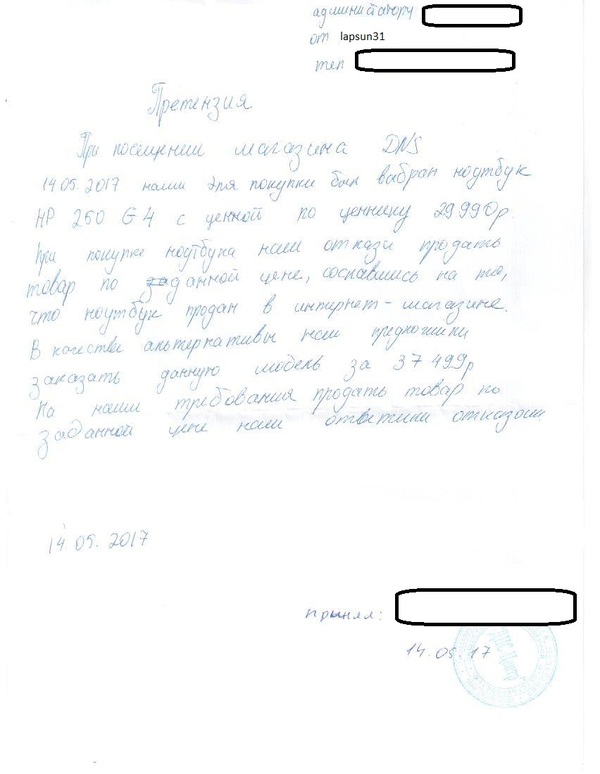 администратору
от lapsun31
тел
Претензия
При посещении магазина DNS
14.05.2017 нами для покупки был выбран ноутбук
HP 250 G4 с ценной по ценнику 29990р.
При покупке ноутбука нам отказ продать
товар по заданной цене, сославшись на то,
что ноутбук продан в интернет-магазине.
В качестве альтернативы нам предложили
заказать данную модель за 37499р
На наши требования продать товар по
заданной цене нам ответили отказом.
14.05.2017
принял:
14.05.17